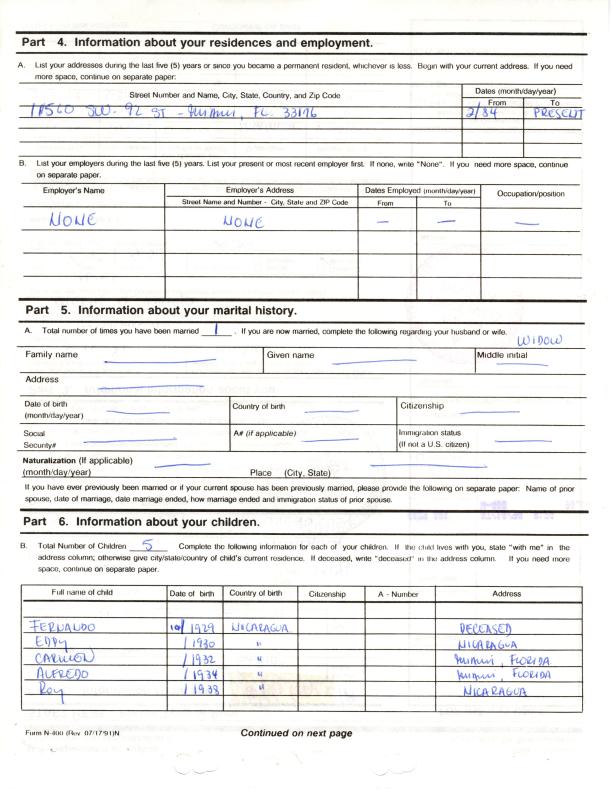 Part 4. Information about your residences and employment.
A. List your addresses during the last five (5) years or since you became a permanent resident, whichever is less. Begin with your current address. If you need
more space, continue on separate paper:
Street Number and Name, City, State, Country, and Zip Code
Dates (month/day/year)
From To
11560 SW. 92 ST - Miami, FL. 33176 2/84 PRESENT
B. List your employers during the last five (5) years. List your present or most recent employer first. If none, write "None". If you need more space, continue
on separate paper.
Employer's Name Employer's Address Dates Employed (month/day/year) Occupation/position
Street Name and Number - City, State and ZIP Code From To
NONE NONE — — —
Part 5. Information about your marital history.
A. Total number of times you have been married 1 . If you are now married, complete the following regarding your husband or wife.
WIDOW
Family name Given name Middle initial
Address
Date of birth Country of birth Citizenship
(month/day/year)
Social A# (if applicable) Immigration status
Security# (If not a U.S. citizen)
Naturalization (If applicable)
(month/day/year) Place (City, State)
If you have ever previously been married or if your current spouse has been previously married, please provide the following on separate paper: Name of prior
spouse, date of marriage, date marriage ended, how marriage ended and immigration status of prior spouse.
Part 6. Information about your children.
B. Total Number of Children 5 Complete the following information for each of your children. If the child lives with you, state "with me" in the
address column; otherwise give city/state/country of child's current residence. If deceased, write "deceased" in the address column. If you need more
space, continue on separate paper.
Full name of child Date of birth Country of birth Citizenship A - Number Address
FERNANDO 10/1929 NICARAGUA DECEASED
EDDY /1930 " NICARAGUA
CARMEN /1932 " Miami, FLORIDA
ALFREDO /1934 " Miami, FLORIDA
Roy /1938 " NICARAGUA
Form N-400 (Rev. 07/17/91)N Continued on next page